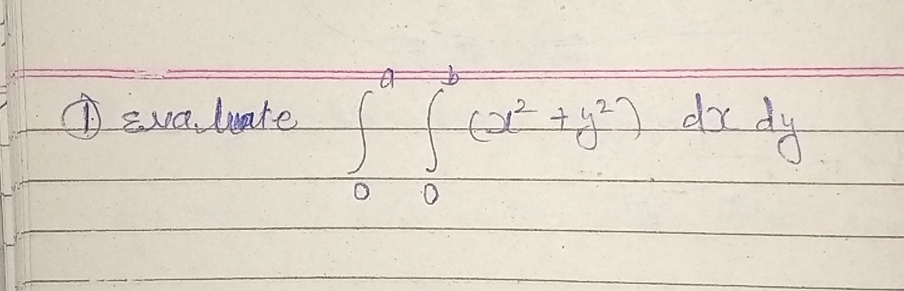 ① Evaluate ∫₀ᵃ ∫₀ᵇ (x² + y²) dx dy